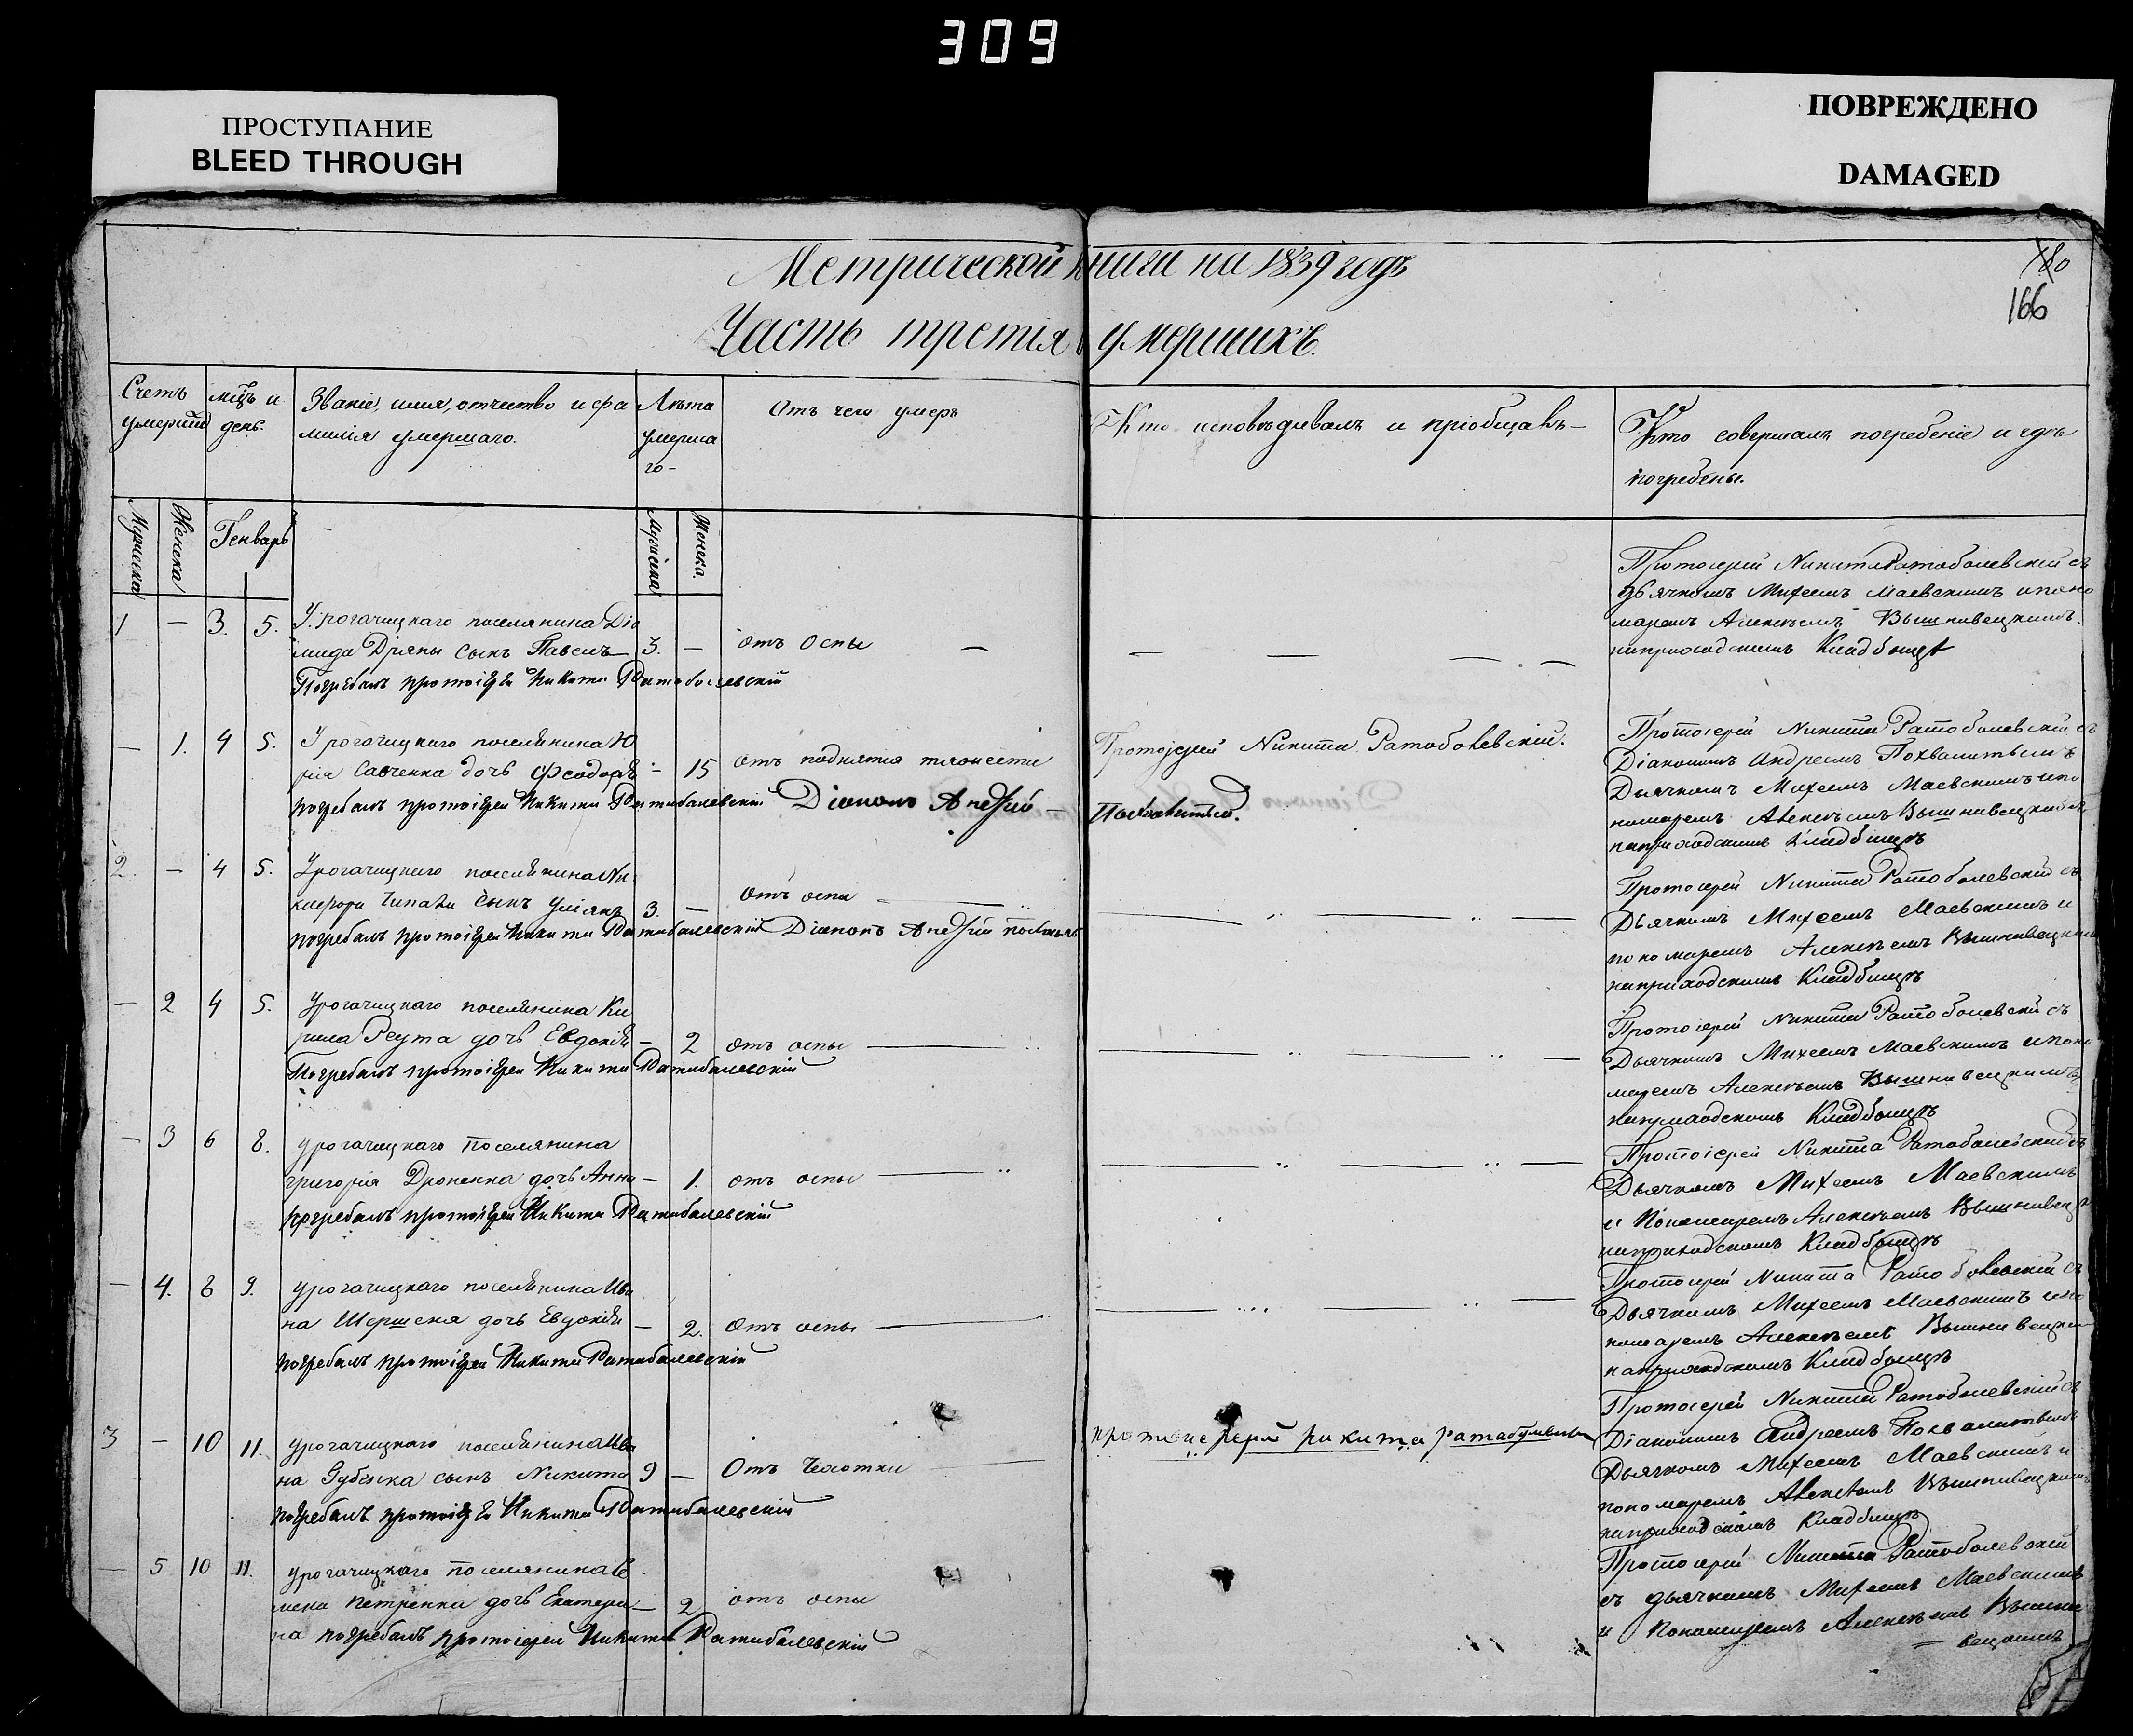 309
ПРОСТУПАНИЕ
BLEED THROUGH
ПОВРЕЖДЕНО
DAMAGED
80
166
Метрической книги на 1839 годъ
Часть третія умершихъ.
Счетъ умерши
мцъ и день.
Званіе, имя, отчество и фа
милія умершаго.
Лѣта
умерша
го-
Отъ чего умеръ
Кто исповѣдывалъ и пріобщалъ-
Кто совершалъ погребеніе и гдѣ
погребены.
Мужеска
Женска
Генварь
Мужеска
Женска.
1 — 3. 5. У. рогачицкаго поселянина Діо
мида Дрины сынъ Павелъ 3. — отъ Оспы —
Погребалъ протоіерей Никита Ратоболевскій
Протоіерей Никита Ратоболевскій съ
дьячкомъ Михеемъ Маевскимъ и поно
маремъ Алексѣемъ Вышнивецкимъ.
на приходскомъ Кладбищѣ
— 1. 4 5. У рогачицкаго поселянина Ю
рія Савченка дочь Феодора — 15 отъ поднятія тяжести
погребалъ протоіерей Никита Ратоболевскій Діаконъ Андрей — Похвалитый.
Протоіерей Никита Ратоболевскій.
Протоіерей Никита Ратоболевскій съ
Діакономъ Андреемъ Похвалитымъ
Дьячкомъ Михеемъ Маевскимъ и по
номаремъ Алексѣемъ Вышнивецкимъ
на приходскомъ Кладбищѣ
2. — 4 5. У рогачицкаго поселянина Ни
кифора сынъ 3. — Отъ оспы
погребалъ протоіерей Никита Ратоболевскій Діаконъ Андрей
Протоіерей Никита Ратоболевскій съ
Дьячкомъ Михеемъ Маевскимъ и
пономаремъ Алексѣемъ Вышнивецкимъ
на приходскомъ Кладбищѣ
— 2 4 5. У рогачицкаго поселянина Ки
рила Реута дочь Евдокія — 2 отъ оспы
Погребалъ протоіерей Никита Ратоболевскій
Протоіерей Никита Ратоболевскій съ
Дьячкомъ Михеемъ Маевскимъ и поно
маремъ Алексѣемъ Вышнивецкимъ
на приходскомъ Кладбищѣ
— 3 6 8. У рогачицкаго поселянина
Григорія Дроненка дочь Анна — 1. отъ оспы
погребалъ протоіерей Никита Ратоболевскій
Протоіерей Никита Ратоболевскій съ
Дьячкомъ Михеемъ Маевскимъ
и Пономаремъ Алексѣемъ
на приходскомъ Кладбищѣ
— 4. 8 9. У рогачицкаго поселянина Ива
на Шершеня дочь Евдокія — 2. Отъ оспы
погребалъ протоіерей Никита Ратоболевскій
Протоіерей Никита Ратоболевскій съ
Дьячкомъ Михеемъ Маевскимъ и по
номаремъ Алексѣемъ
на приходскомъ Кладбищѣ
3 — 10 11. У рогачицкаго поселянина Ива
на сынъ Никита 9 — Отъ Чахотки
погребалъ протоіерей Никита Ратоболевскій
Протоіерей Никита Ратоболевскій съ
Діакономъ Андреемъ Похвалитымъ
Дьячкомъ Михеемъ Маевскимъ и
пономаремъ Алексѣемъ Вышнивецкимъ
на приходскомъ Кладбищѣ
— 5 10 11. У рогачицкаго поселянина Се
мена Петренка дочь Екатери— 2 отъ оспы
на погребалъ протоіерей Никита Ратоболевскій
Протоіерей Никита Ратоболевскій
съ дьячкомъ Михеемъ Маевскимъ
и Пономаремъ Алексѣемъ Вышни
— вецкимъ